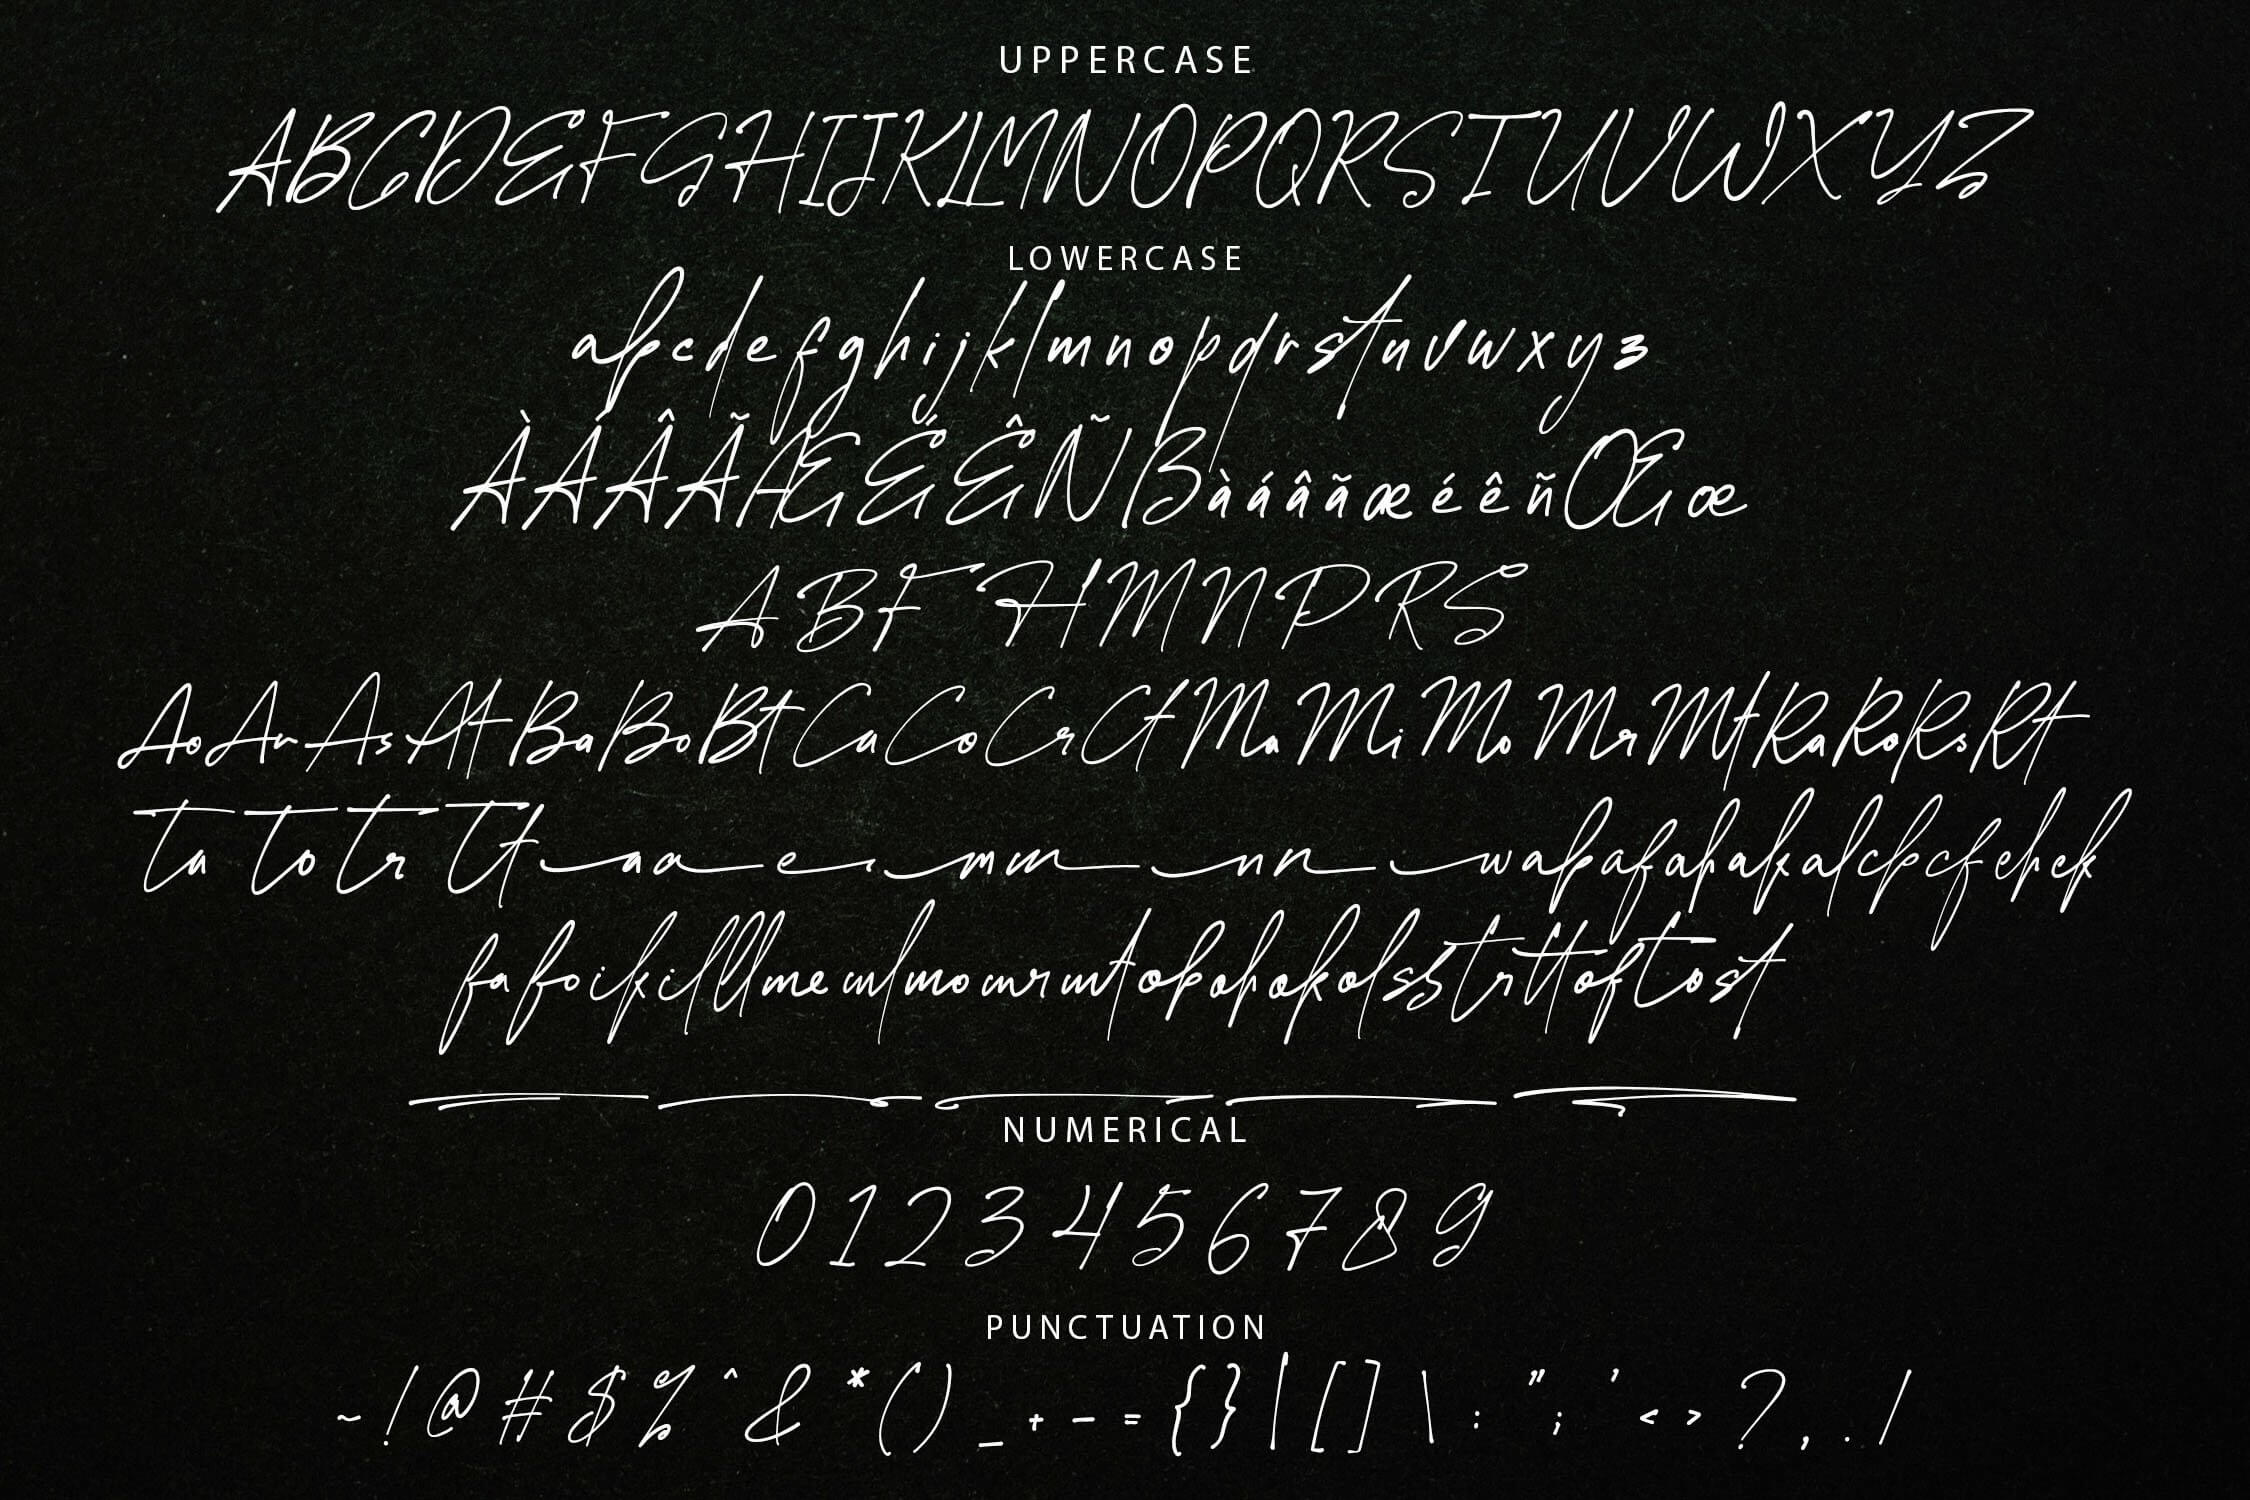 UPPERCASE
ABCDEFGHIJKLMNOPQRSTUVWXYZ
LOWERCASE
abcdefghijklmnopqrstuvwxyz
ÀÁÂÃÆÉÊÑßàáâãæéêñŒœ
ABFHMNPRS
AoArAsAtBaBoBtCaCoCrCtMaMiMoMrMtRaRoRsRt
TaToTrTtaaemmnnwabafahakalcbcfehek
fafoikilllmemlmomrmtobohokolsbtrttoftost
NUMERICAL
0123456789
PUNCTUATION
~!@#$%^&*()_+-={}|[]\:";'<>?,./